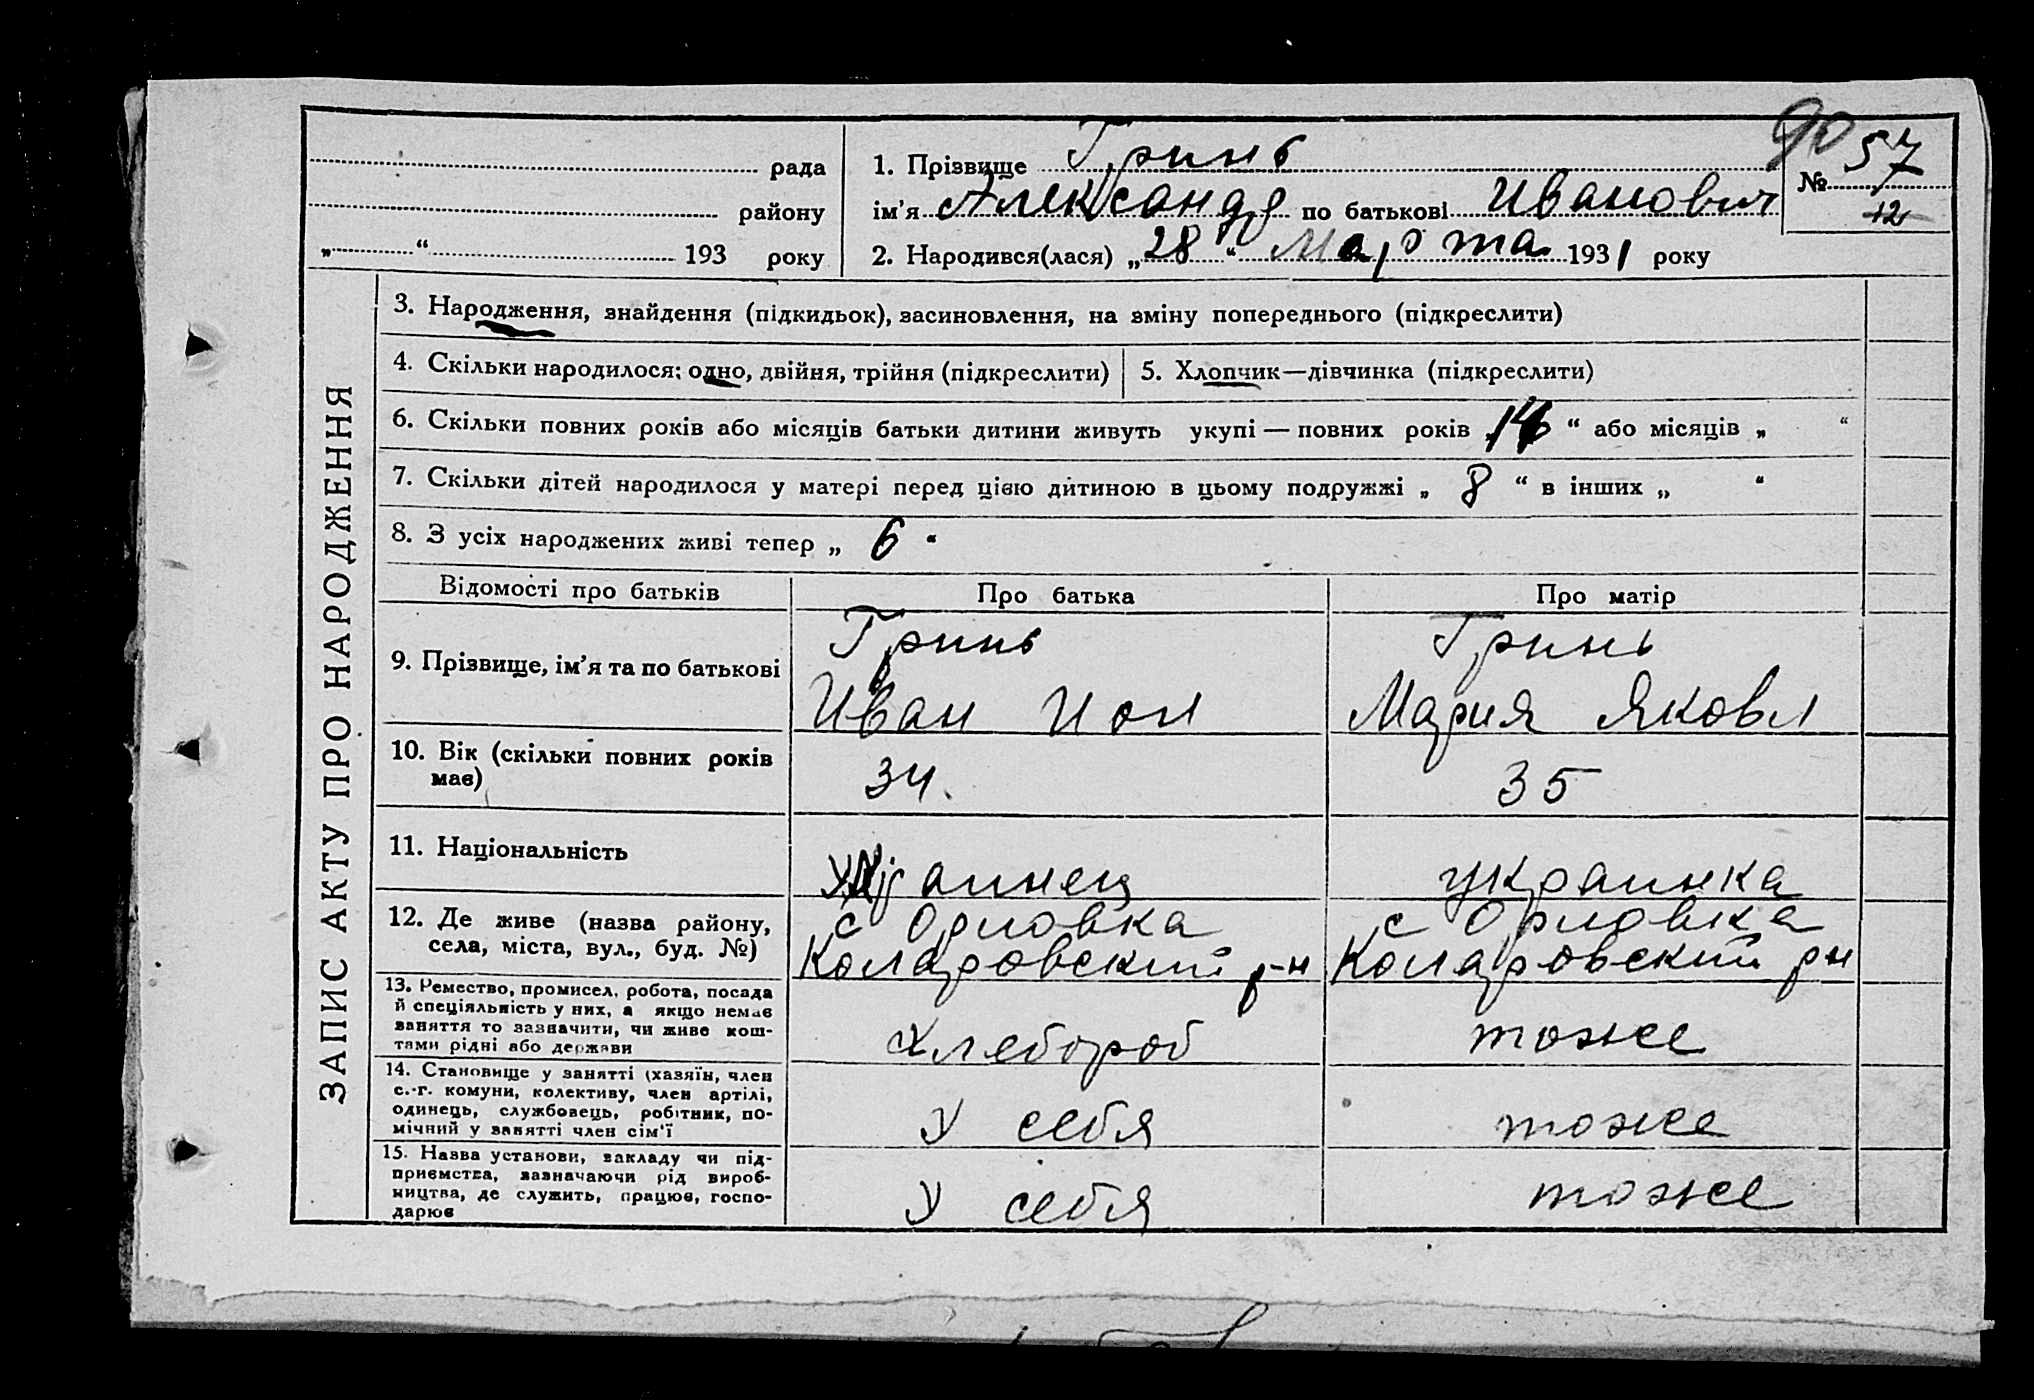 90
рада
району
„ “ 193 року
1. Прізвище Гринь
ім’я Александр по батькові Иванович
2. Народився(лася) „28“ Марта 1931 року
№ 57
12
ЗАПИС АКТУ ПРО НАРОДЖЕННЯ
3. Народження, знайдення (підкидьок), засиновлення, на зміну попереднього (підкреслити)
4. Скільки народилося; одно, двійня, трійня (підкреслити) 5. Хлопчик—дівчинка (підкреслити)
6. Скільки повних років або місяців батьки дитини живуть укупі — повних років „ “ або місяців „ “
7. Скільки дітей народилося у матері перед цією дитиною в цьому подружжі „ 8 “ в інших „ “
8. З усіх народжених живі тепер „ 6 “
Відомості про батьків Про батька Про матір
9. Прізвище, ім’я та по батькові
Гринь
Иван Ион
Гринь
Мария Яковл
10. Вік (скільки повних років
має)
34.
35
11. Національність
Украинец
украинка
12. Де живе (назва району,
села, міста, вул., буд. №)
с Орловка
Коларовский р-н
с Орловка
Коларовский рн
13. Ремество, промисел, робота, посада
й спеціяльність у них, а якщо немає
заняття то зазначити, чи живе кош-
тами рідні або держави
Хлебороб
тоже
14. Становище у занятті (хазяїн, член
с.-г. комуни, колективу, член артілі,
одинець, службовець, робітник, по-
мічний у занятті член сім’ї
У себя
тоже
15. Назва установи, закладу чи під-
приємства, зазначаючи рід вироб-
ництва, де служить, працює, госпо-
дарює
У себя
тоже